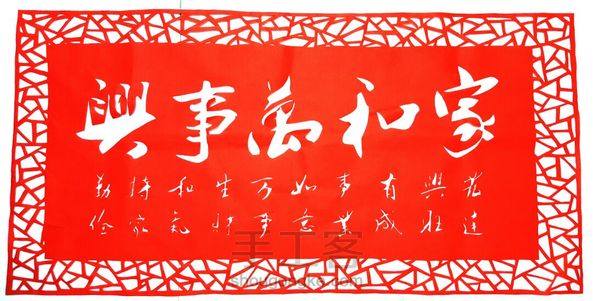 家和萬事興
勤俭持家和氣生财万事如意事業有成興旺發達
手工客
shougongke.com